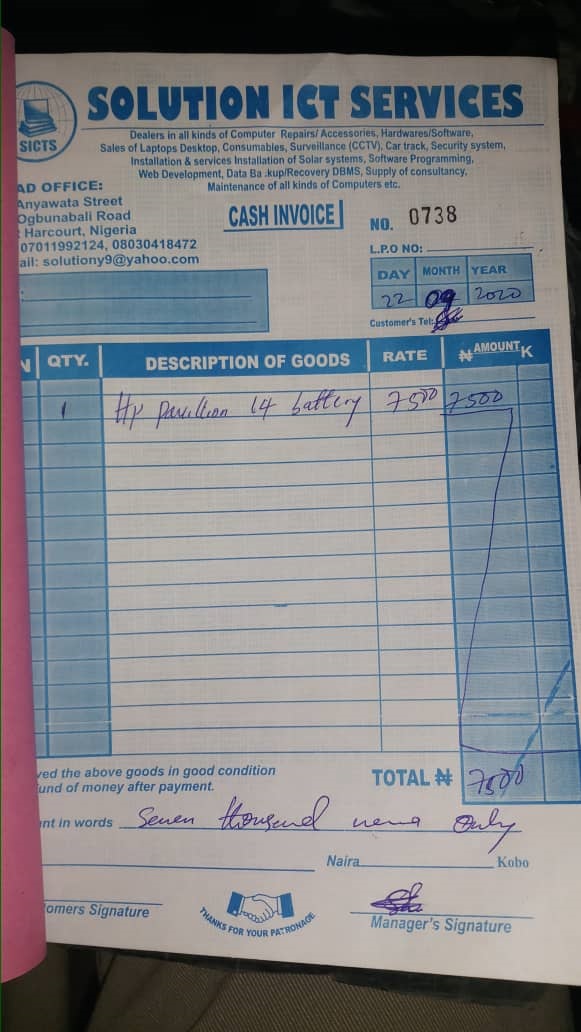 SOLUTION ICT SERVICES
SICTS
Dealers in all kinds of Computer Repairs/ Accessories, Hardwares/Software,
Sales of Laptops Desktop, Consumables, Surveillance (CCTV), Car track, Security system,
Installation & services Installation of Solar systems, Software Programming,
Web Development, Data Ba .kup/Recovery DBMS, Supply of consultancy,
Maintenance of all kinds of Computers etc.
AD OFFICE:
Anyawata Street
Ogbunabali Road
Harcourt, Nigeria
07011992124, 08030418472
ail: solutiony9@yahoo.com
CASH INVOICE
NO. 0738
L.P.O NO:
DAY MONTH YEAR
22 09 2020
Customer's Tel:
N QTY. DESCRIPTION OF GOODS RATE ₦ AMOUNT K
1 HP pavillion 14 battery 7500 7500
ved the above goods in good condition
und of money after payment.
TOTAL ₦ 7500
nt in words Seven thousand nena Only
Naira Kobo
omers Signature
THANKS FOR YOUR PATRONAGE
Manager's Signature